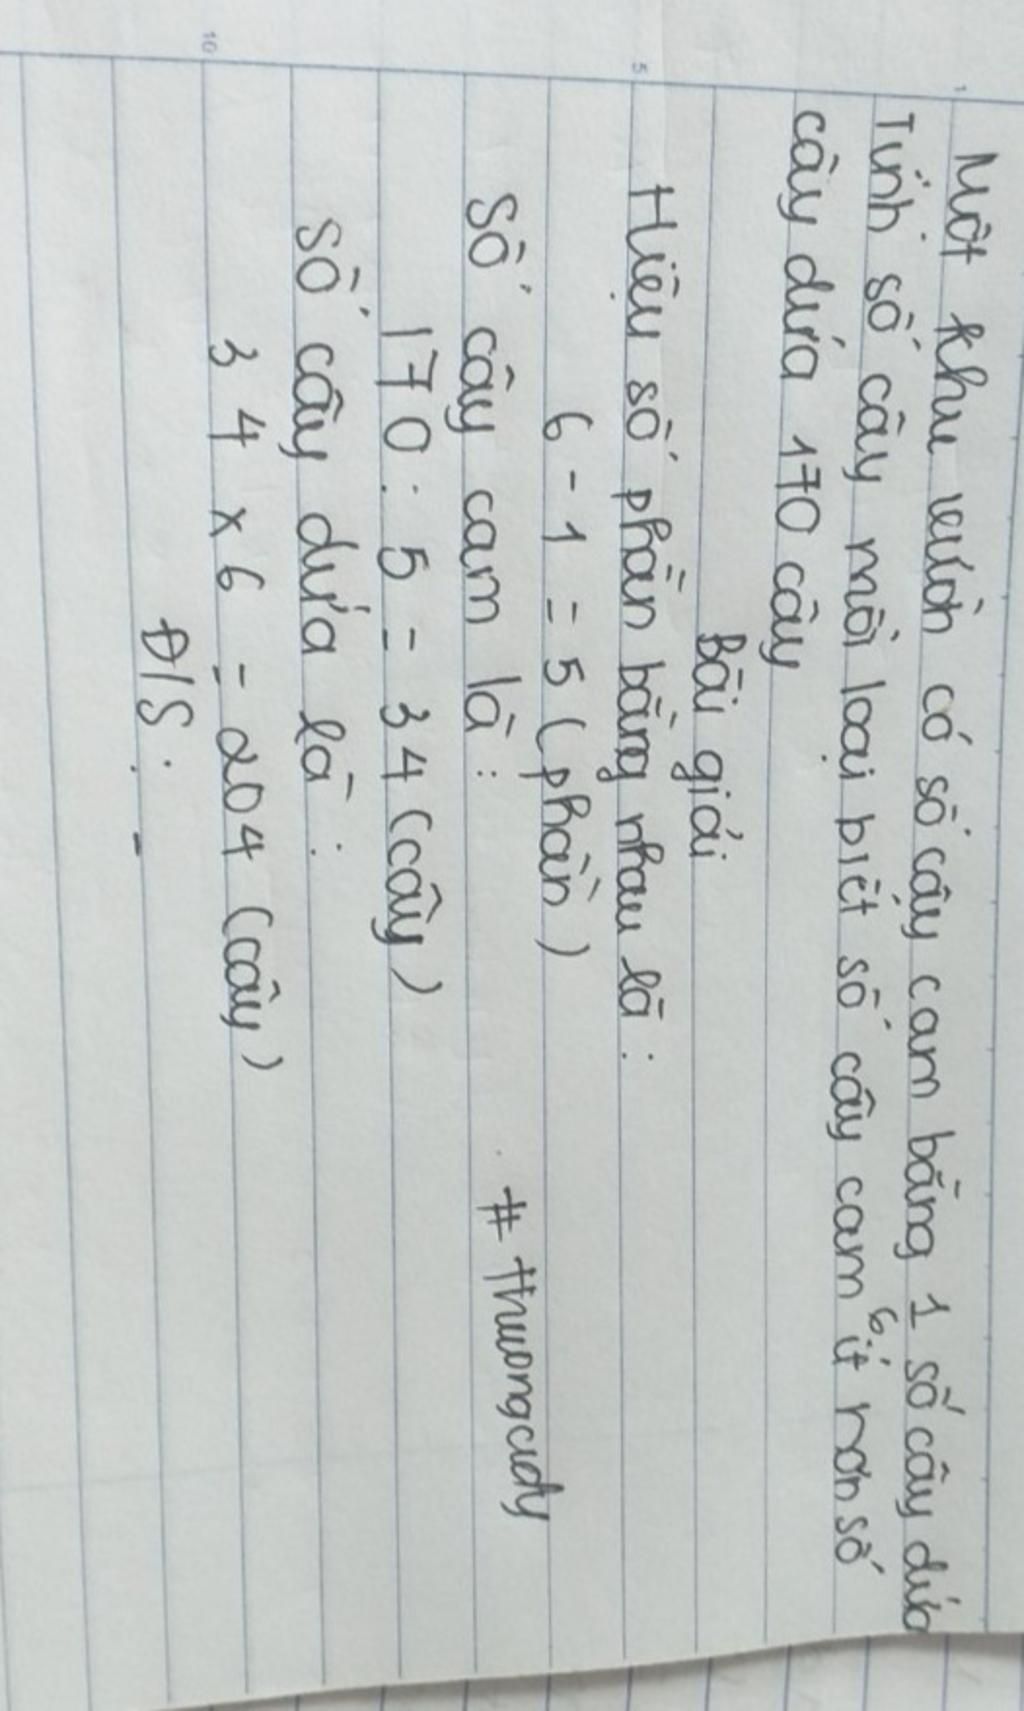 Một khu vườn có số cây cam bằng 1 số cây dứa
6
Tính số cây mỗi loại biết số cây cam ít hơn số
cây dứa 170 cây
Bài giải
Hiệu số phần bằng nhau là :
6 - 1 = 5 ( phần )
Số cây cam là :
170 : 5 = 34 (cây)
Số cây dứa là :
34 x 6 = 204 (cây)
Đ/S : -
# thuongcudy
1
5
10